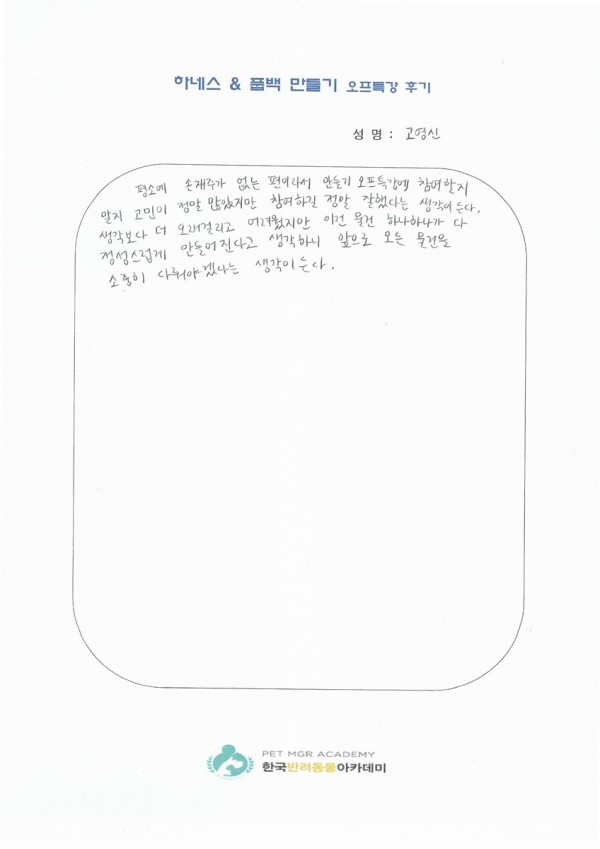 하네스 & 풉백 만들기 오프특강 후기
성 명 : 고영신
평소에 손재주가 없는 편이라서 만들기 오프특강에 참여할지
말지 고민이 정말 많았지만 참여하길 정말 잘했다는 생각이 든다.
생각보다 더 오래걸리고 어려웠지만 이런 물건 하나하나가 다
정성스럽게 만들어진다고 생각하니 앞으로 모든 물건을
소중히 다뤄야겠다는 생각이 든다.
PET MGR ACADEMY
한국반려동물아카데미